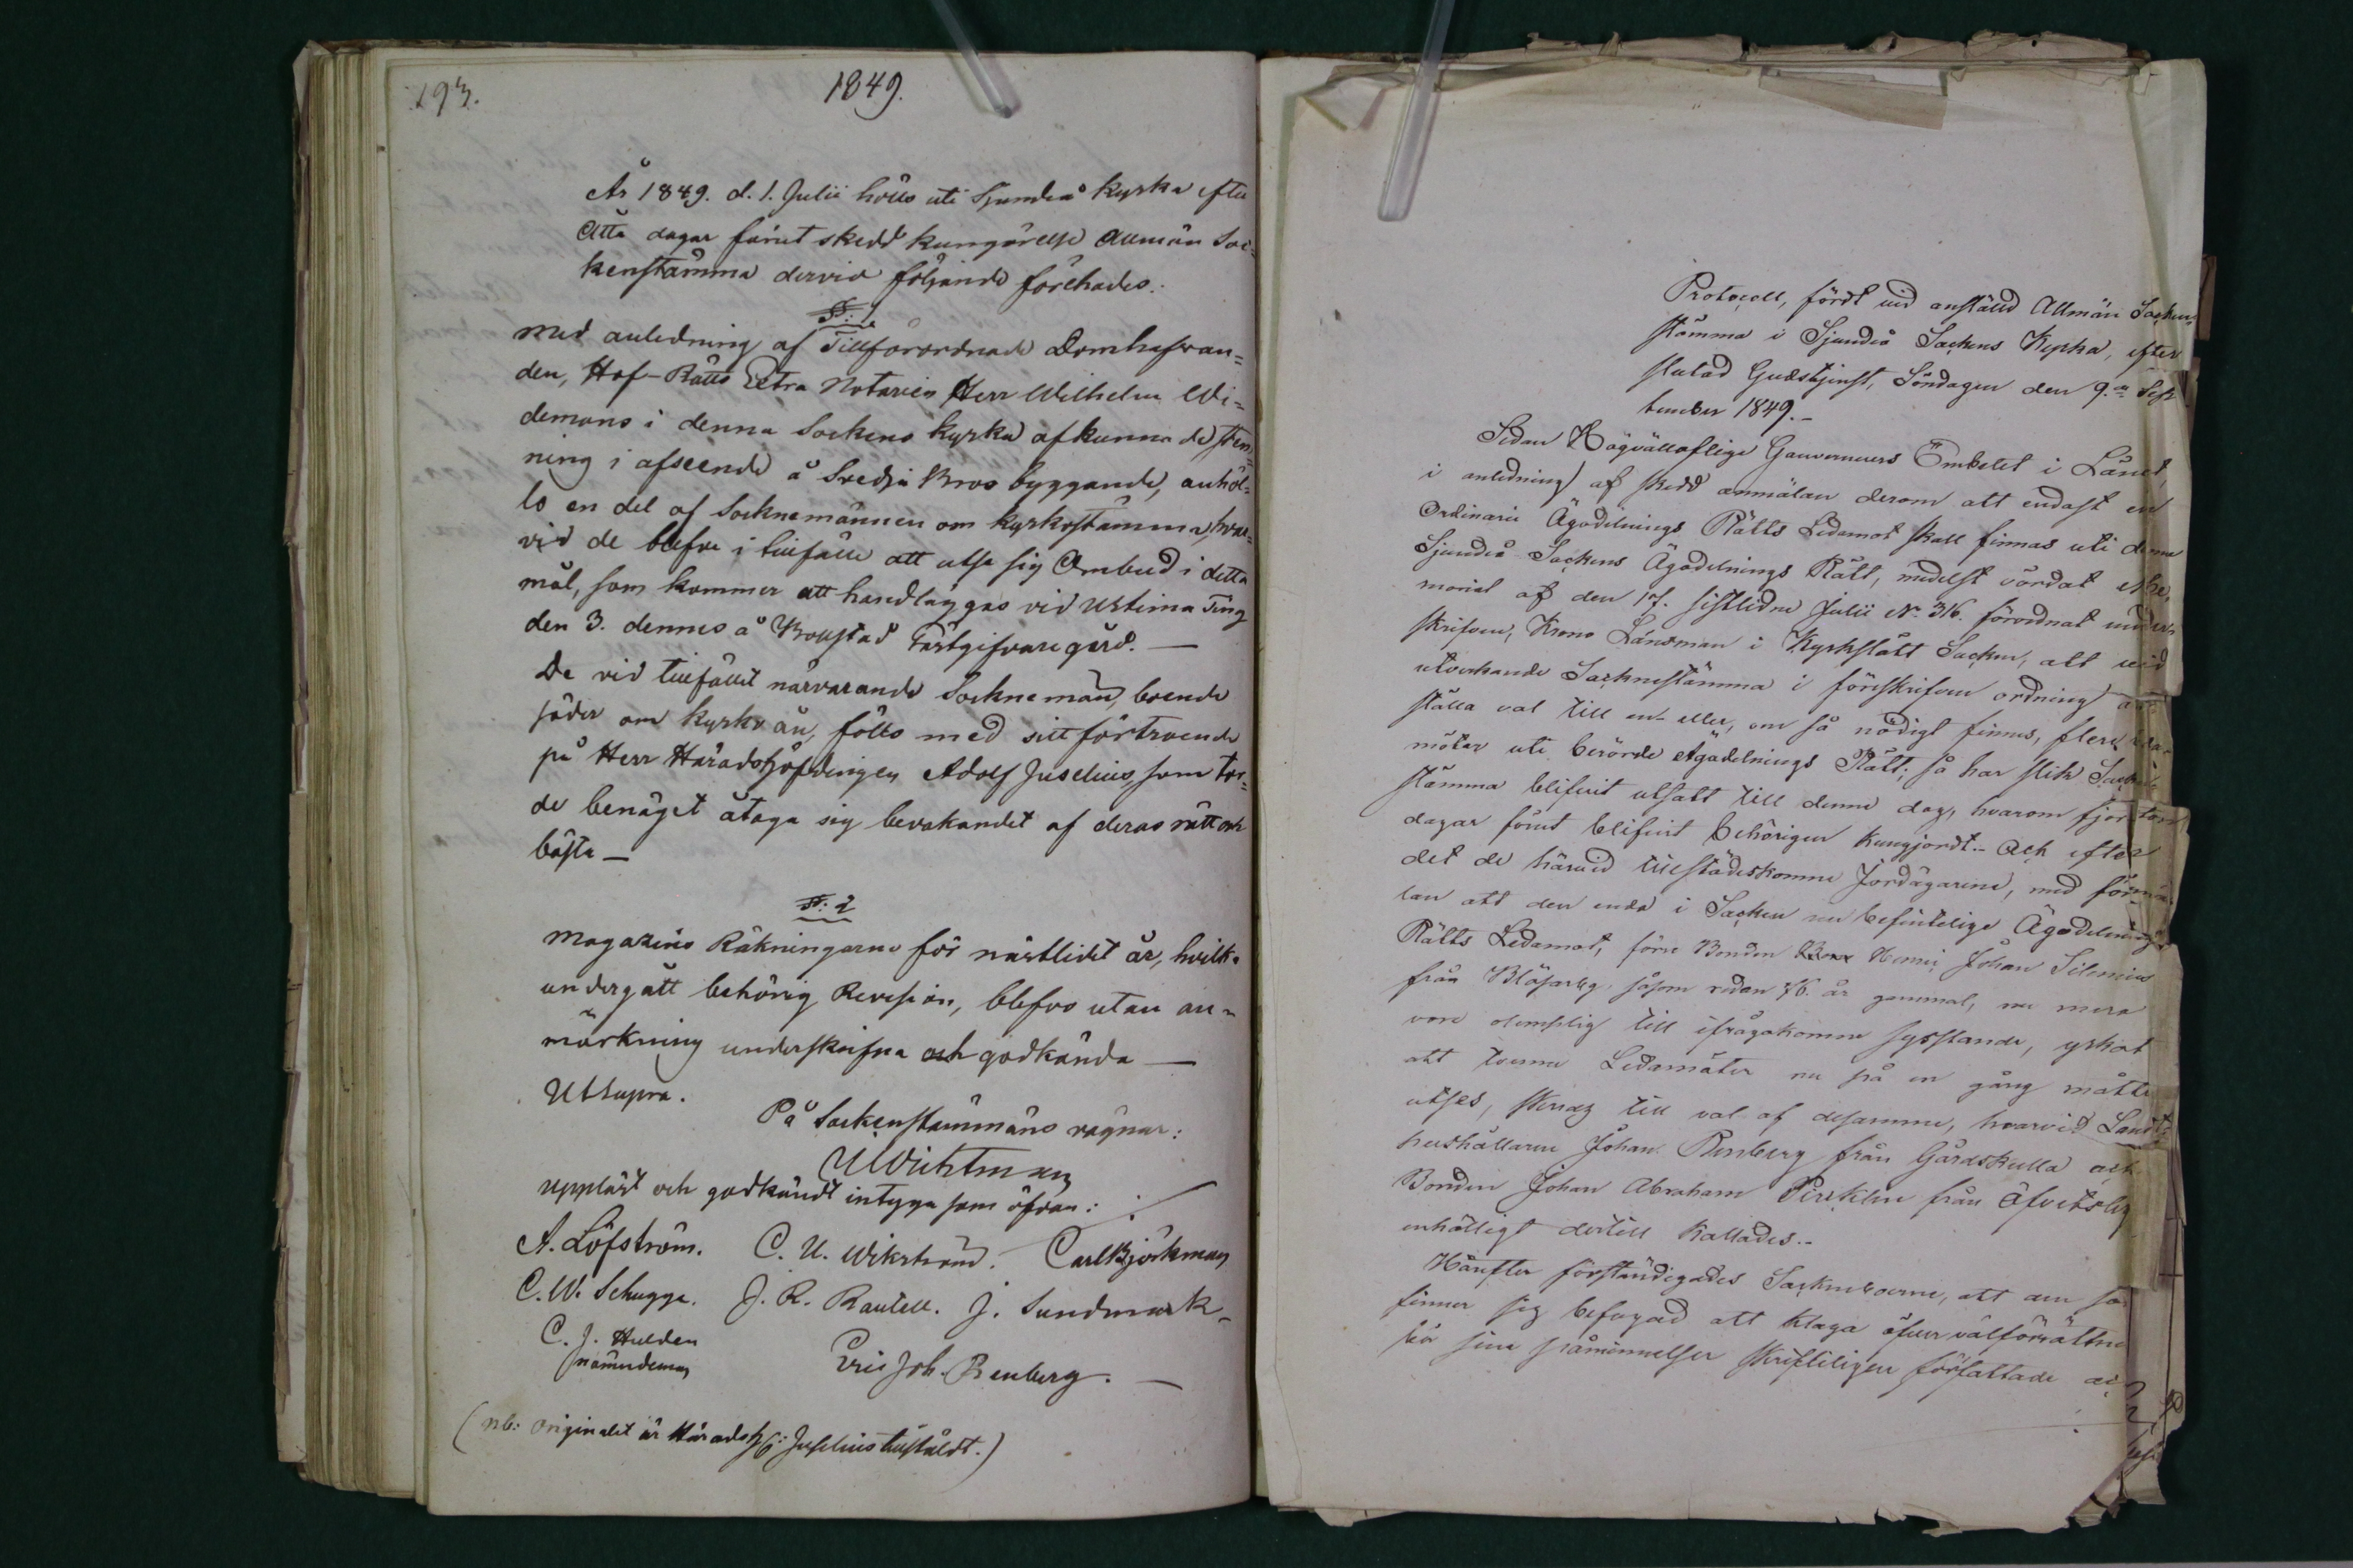 193.
1849.
År 1849. d. 1. Julii hölls uti Sjundeå Kyrka efter
Åtta dagar förut skedd kungörelse Allmän Soc-
kenstämma dervid följande förehades.
§: 1
Med anledning af Tillförordnade Domhafvan-
den, Hof-Rätts Extra Notarien Herr Wilhelm Wi-
demans i denna Sockens kyrka afkunnade stäm-
ning i afseende å Svedja Bros byggande, anhöl-
lo en del af Socknemännen om kyrkostämma, hvar-
vid de blefve i tillfälle att utse sig Ombud i detta
mål, som kommer att handläggas vid Urtima Ting
den 3. dennes å Bollstad Gästgifvare gård. —
De vid tillfället närvarande Socknemän, boende
söder om kyrko ån, föllo med sitt förtroende
på Herr Häradshöfdingen Adolf Juselius, som tor-
de benäget åtaga sig bevakandet af deras rätt och
bästa —
§: 2
Magazins Räkningarne för nästlidet år, hvilka
undergått behörig Revision, blefvo utan an-
märkning underskrifna och godkända —
Ut supra.
På Sockenstämmans vägnar:
Wichtman
Uppläst och godkändt intyga som öfvan:
A. Löfström. C. U. Wikström. Carl Björkman
C. W. Schugge. J. R. Rautell. J. Sundmark.
C. J. Hulden
nämndeman
Eric Joh. Renberg. —
(nb: Originalet är Häradsh: Juselius tillstäldt.)
Protocoll, fördt vid anstäld Allmän Socken-
stämma i Sjundeå Sockens Kyrka, efter
slutad Gudstjenst, Söndagen den 9.de Sep-
tember 1849.-
Sedan Högvällofliga Gouverneurs Embetet i Länet,
i anledning af skedd anmälan derom att endast en
Ordinarie Ägodelnings Rätts Ledamot skall finnas uti denna
Sjundeå Sockens Ägodelnings Rätt, medelst vördat Me-
morial af den 17. sistlidne Julii No. 316. förordnat under-
skrifven, Krono Länsman i Kyrkslätt Socken, att vid
utverkande Sockenstämma i föreskrifven ordning an-
ställa val till en eller, om så nödigt finnes, flere Leda-
möter uti berörde Ägodelnings Rätt; så har slik Socken-
stämma blifvit utsatt till denne dag, hvarom fjorton
dagar förut blifvit behörigen kungjordt.- Och efter
det de härvid tillstädeskomne Jordägarene, med förmä-
lan att den enda i Socken nu befintelige Ägodelnings
Rätts Ledamot, förre Bonden Henric Johan Silenius
från Blåfarby, såsom redan 76. år gammal, nu mera
vore olemplig till ifrågakomne sysslande, yrkat
att tvenne Ledamöter nu på en gång måtte
utses, skreds till val af desamme, hvarvid Landt-
hushållaren Johan Renberg från Gårdskulla och
Bonden Johan Abraham Pirklén från Öfvitsby
enhälligt dertill kallades.-
Härefter förständigades Sockneboerne, att den som
finner sig befogad att klaga öfver valförrättne
bör sine påminnelser skrifteligen författade